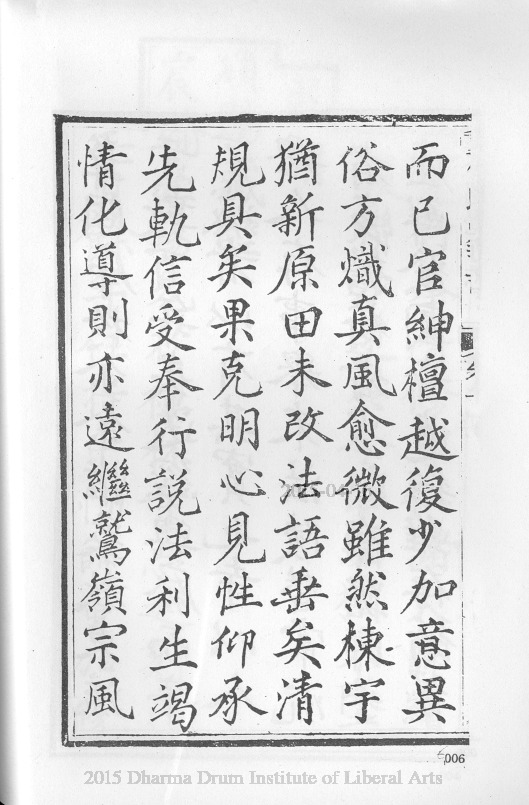 而已官紳檀越復少加意異
俗方熾真風愈微雖然棟宇
猶新原田未改法語垂矣清
規具矣果克明心見性仰承
先軌信受奉行說法利生竭
情化導則亦遠繼鷲嶺宗風
006
2015 Dharma Drum Institute of Liberal Arts